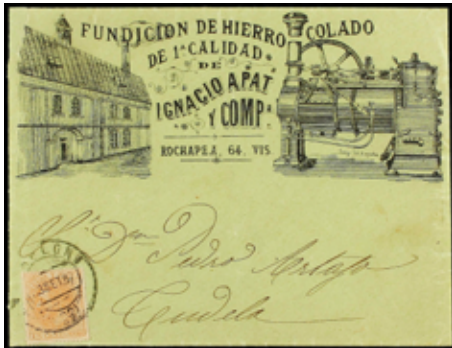 FUNDICION DE HIERRO COLADO
DE 1ª CALIDAD
DE
IGNACIO APAT
Y COMPª
ROCHAPEA, 64, VIS.
Sr Dn Pedro
Tudela